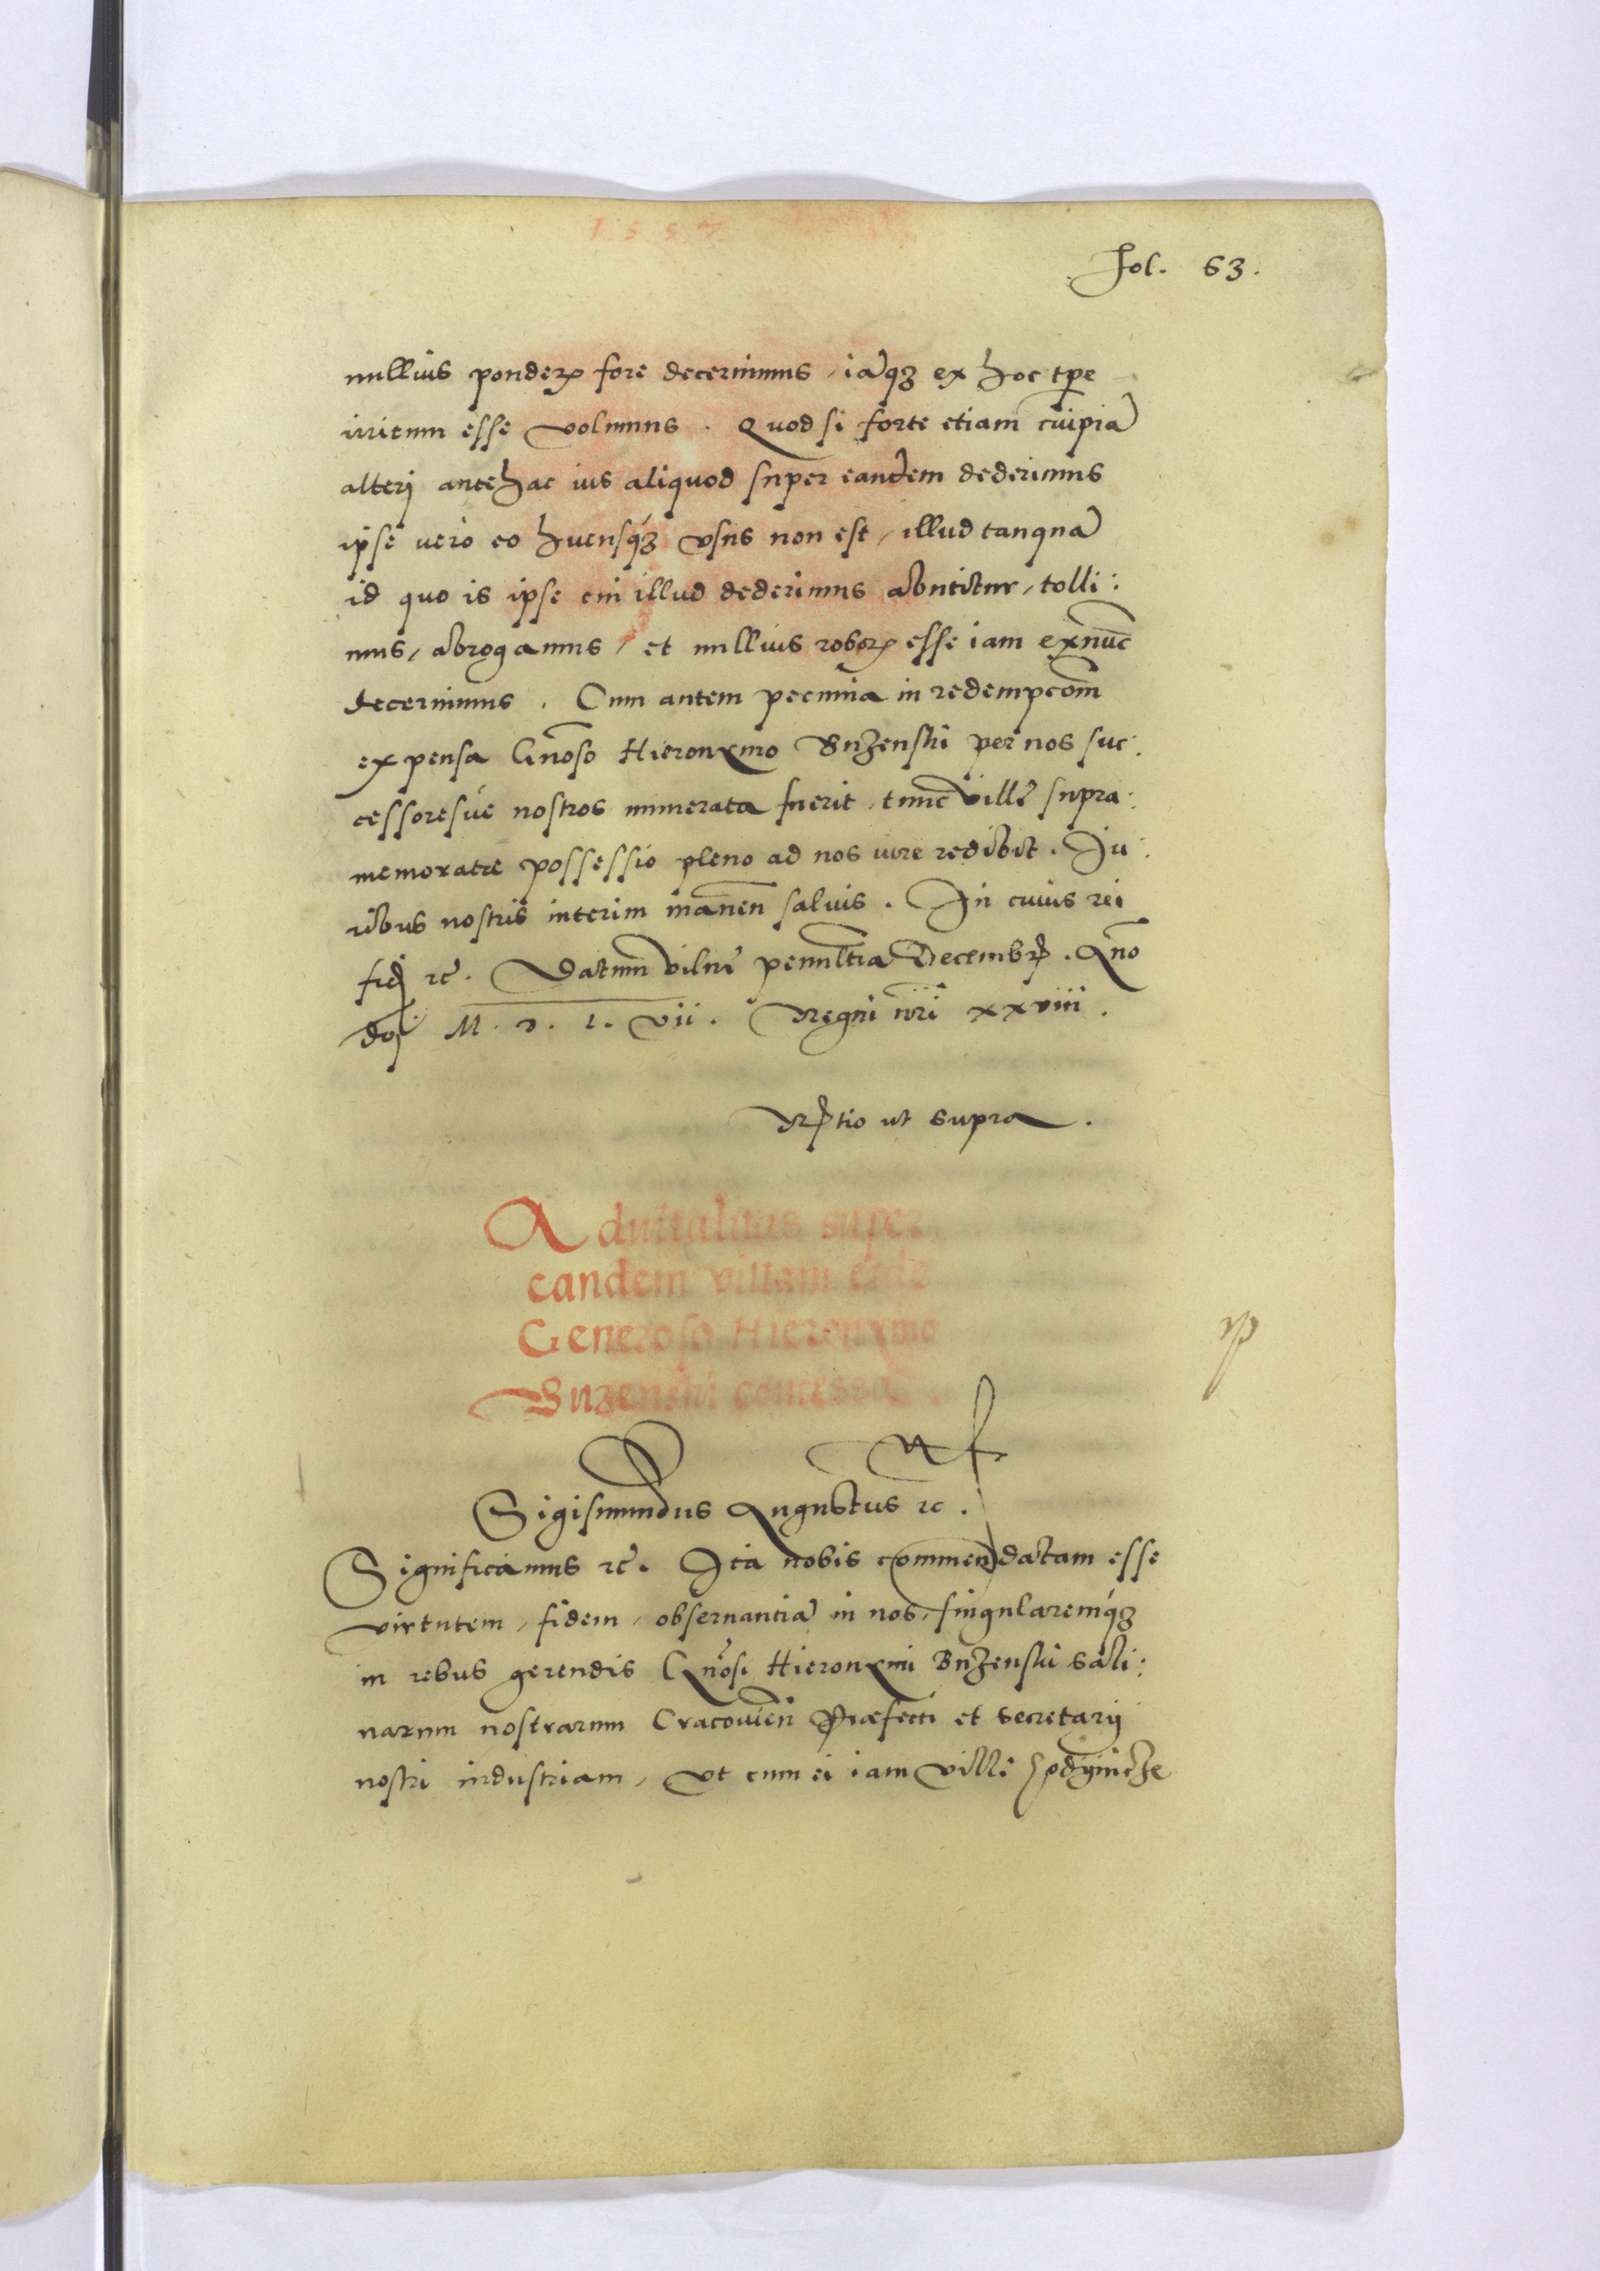 1 5 5 7
Fol. 63.
nullius ponderꝭ fore decernimus, iāqꝫ ex hoc tp̄e
irritum esse volumus. Quod si forte etiam cuipiā
alterj antehac ius aliquod super eandem dederimus
ipse uerò eo hucusqꝫ vsus non est, illud tanquā
id quo is ipse cui illud dederimus abutitur, tolli:
mus, abrogamus, et nullius roborꝭ esse iam exnūc
decernimus. Cum autem pecunia in redempcōm
expensa Gn̄oso Hieronymo Buzenski per nos suc:
cessoresúe nostros numerata fuerit, tunc villę supra:
memoratæ possessio pleno ad nos iure redibit. Iu:
ribus nostris interim manen̄ saluis. In cuius rei
fidē ꝛc̄. Datum vilnę penultīa Decembrꝭ. Anno
Dnj M. D. L. vii. Regni nr̄i xxviii.
Rꝉtio ut supra.
Aduitalitas super
eandem villam eidē
Generoso Hieronymo
Buzenski concessa.
Sigismundus Augustus ꝛc.
Significamus ꝛc̄. Ita nobis commendatam esse
virtutem, fidem, obseruantiā in nos, singularemqꝫ
in rebus gerendis Gn̄osi Hieronymi Buzenski Sali:
narum nostrarum Cracouien̄ Præfecti et Secretarij
nostri industriam, vt cum ei iam villę